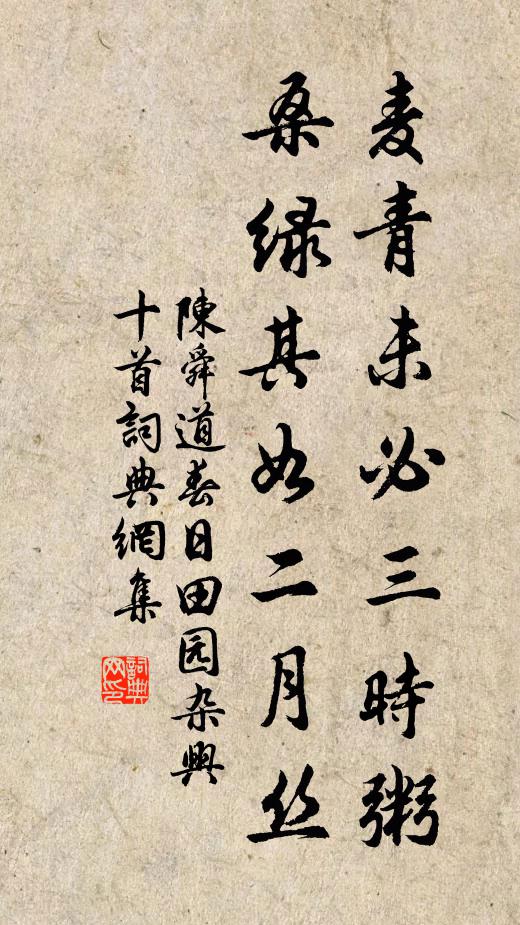 麦青未必三時粥
桑绿其如二月丝
陳舜道春日田园杂興
十首詞典網集
詞典网印